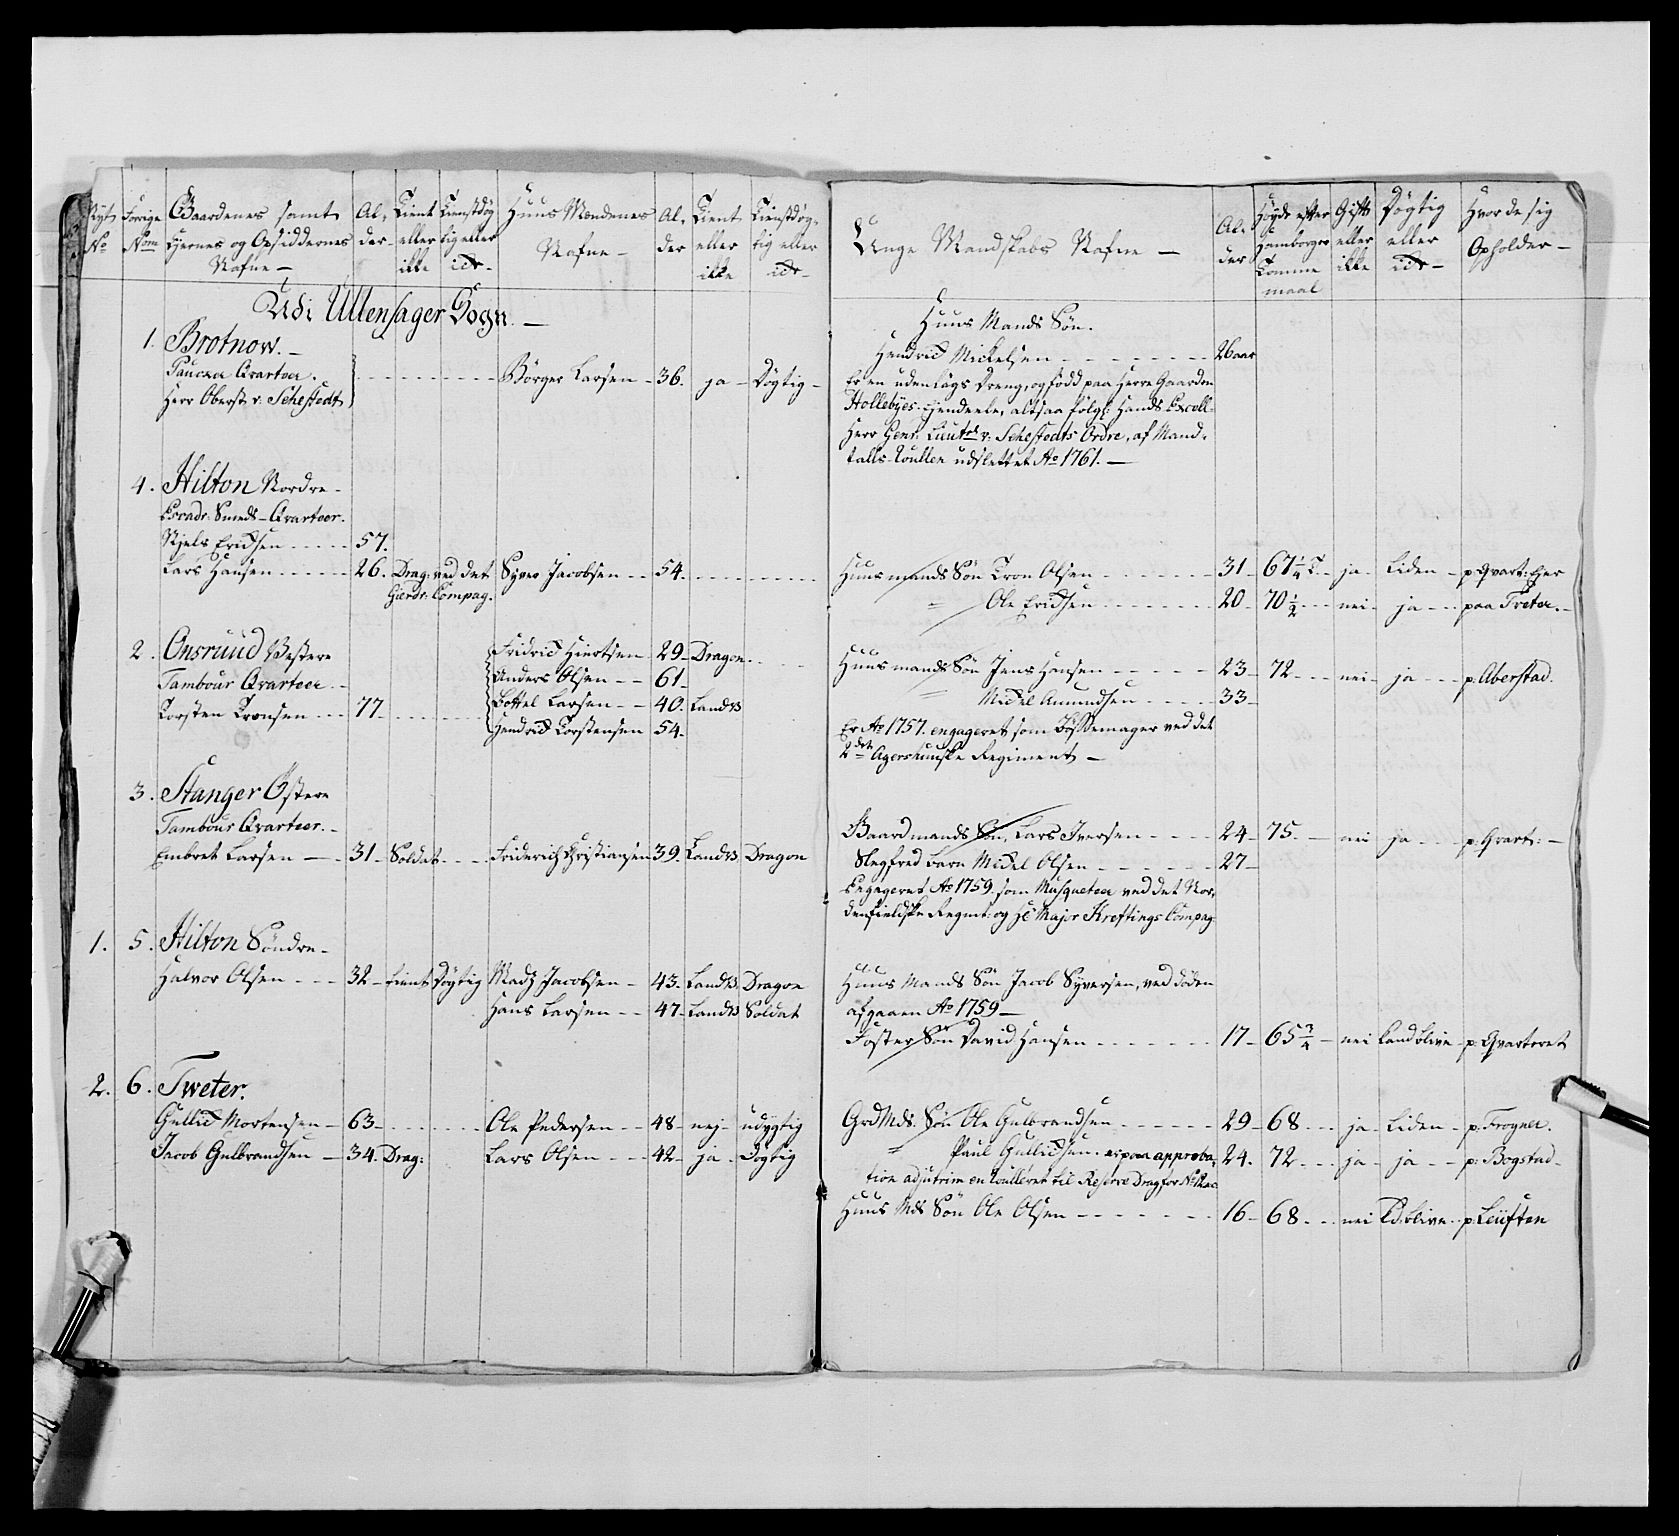 Nyt No
Forige Nom
Gaardenes samt Ejernes og Opsiddernes Nafne —
Al- der
Tient eller ikke
Tienstdygtig eller icke
Huus Mændenes Nafne —
Al- der
Tient eller ikke
Tienstdøgtig eller icke
Udi Ullensager Sogn. —
1. Brotnow. —
Paucker Qvarteer.
Herr Oberst v: Schestedt
Börger Larsen - 36. ja - Dögtig -
4. Hilton Nordre -
Escadr: Smeds - Qvarteer.
Niels Ericksen 57.
Lars Hansen 26. Drag: ved det Syver Jacobsen 54.
Gierdr: Compag.
2. Onsruud Vestere
Tambour Qvarteer -
Torsten Tronsen 77.
Fridrick Hiertsen 29 - Dragon
Anders Olsen 61 -
Bottel Larsen 40. Landv
Hendrick Torstensen 54.
3. Stanger Östere
Tambour Qvarteer. -
Embret Larsen — 31 - Soldat Friderich Christiansen 39. Landv. Dragon
1. 5. Hilton Söndre -
Halvor Olsen 32 - tient Dögtig Madz Jacobsen - 43 - Landv. Dragon
Hans Larsen 47 - Landv Soldat
2. 6. Tweter.
Gullick Mortensen - 63 - Ole Pedersen 48 - nej - udygtig
Jacob Gulbrandsen - 34. Drag: Lars Olsen 42 - ja - Dögtig
Unge Mandskabs Nafne —
Al- der
Höyde efter Hamborger Tomme maal
Gift eller ikke
Dögtig eller icke
Hvor de sig Opholder —
Huus Mands Sön.
Hendrick Mickelsen 26 aar
Er en uden Lægs Dreng, og född paa Herre Gaarden
Hollebyes Ejendeele, altsaa fölgl: Hands Excell:
Herr Genr: Lieutn v: Schestedts Ordre, af Mand-
talls-Roullen udslettet Ao 1761. —
Huus mands Sön Tron Olsen 31 - 67 1/4 T. - ja - Liden - p. Qvart: Ejer
" Ole Ericksen 20 - 70 1/2 nei - ja paa Tveter. -
Huus mands Sön Jens Hansen 23 - 72 nei - ja p. Aberstad.
" Mickel Amundsen 33 -
Er Ao 1757. engageret som Bössemager ved det
2det Agershuuske Regiment —
Gaardmands Sön, Lars Iversen 24 - 75. - nei ja p. Qvart: -
Slegfred barn Mickel Olsen 27 -
Engageret Ao 1759. som Musqueteer ved det Nor-
denfieldske Regmt: og Hr Major Kreftings Compag
Huus Mands Sön Jacob Syversen, ved döden
afgaaen Ao 1759 —
Foster Sön David Hansen 17 - 65 3/4 - nei kand blive - p. Qvarteret
Grd Mds: Sön Ole Gulbrandsen 29 - 68 ja - Liden - p: Frogner.
" Paul Gullicksen. er paa approba- 24. 72 ja - ja - p: Bogstad -
tion adjutrim en Roulleret til Reserve Drag for No
Huus Mds Sön Ole Olsen 16 - 68 nei Kd: blive - p: Leüften